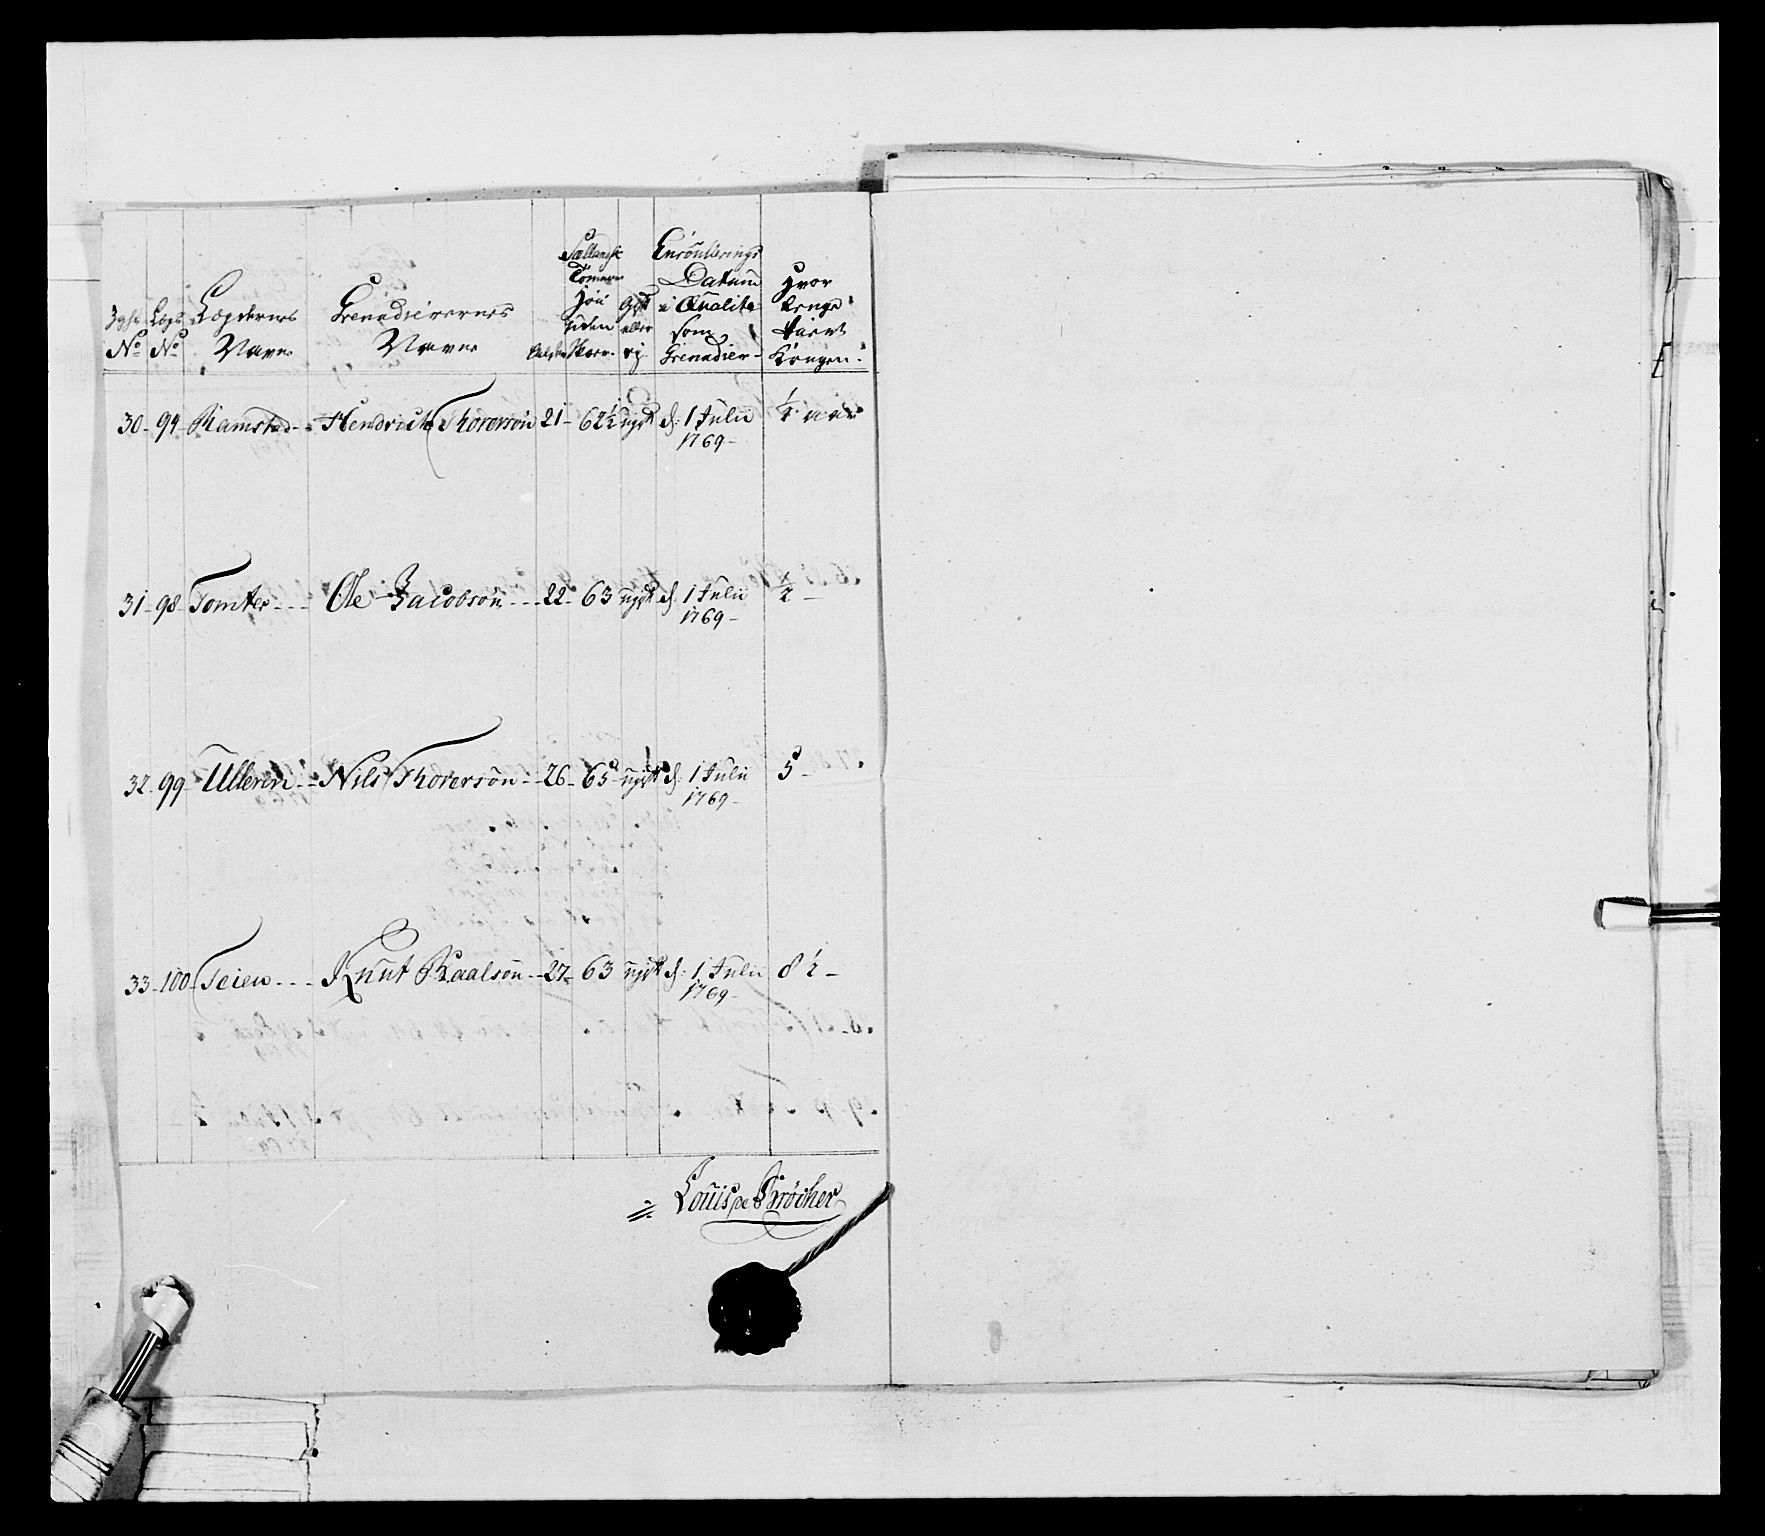 No No Lægdernes Navne Grenadierernes Navne Alder Sællandsk Tommer Høi uden Skoe Gift eller ej Enroullerings Datum i Qualite som Grenadier Hvor længe tient Kongen
30 - 94 Ramstad - Hendrich Thorersøn 21 - 62 1/2 ugift d: 1 Julii 1769 - 1/4 aar
31 - 98 Tomter - - - Ole Jacobsøn - - - 22 - 63 ugift d: 1 Julii 1769 - 1/2 -
32 - 99 Ulleren - - Nils Thorersøn - - 26 - 65 - ugift d: 1 Julii 1769 - 5 -
33 - 100 Teien - - - Knut Paalsøn - - 27 - 63 ugift d: 1 Julii 1769 - 8 1/2 -
Louis de Brøcher